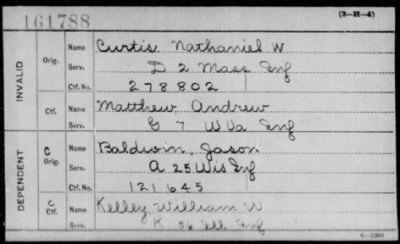 161788
(3-H-4)
INVALID
Orig.
Name Curtis, Nathaniel W
Serv. D 2 Mass Inf
Ctf. No. 278802
Ctf.
Name Matthew, Andrew
Serv. G 7 W Va Inf
DEPENDENT
C
Orig.
Name Baldwin, Jason
Serv. A 25 Wis Inf
Ctf. No. 121645
C
Ctf.
Name Kelley, William W
Serv. K 56 Ill Inf